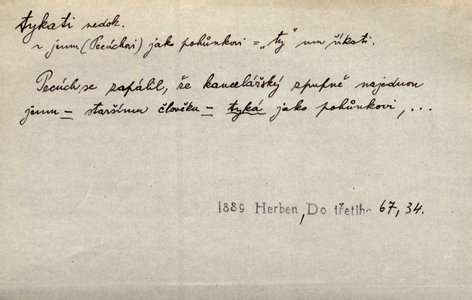 tykati nedok.
~ jemu (Pecúchovi) jako pohůnkovi = „ty“ mu říkati.
Pecúch se zapálil, že kancelářský zpupně najednou
jemu – staršímu člověku – tyká jako pohůnkovi, ...
1889 Herben, Do třetího 67, 34.